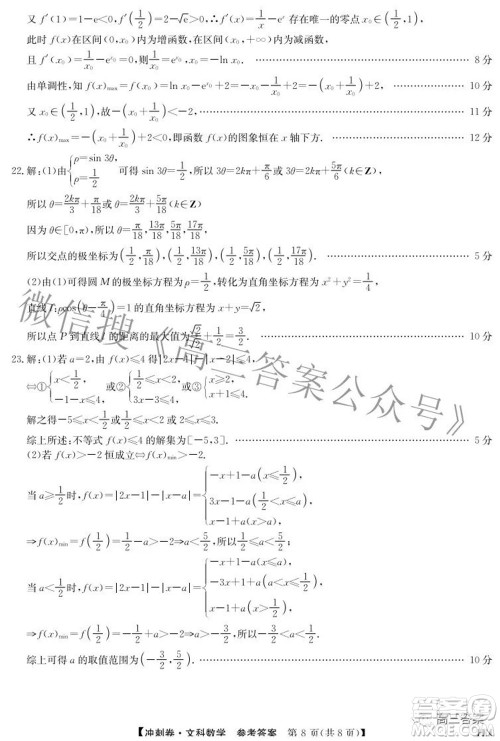 又 f′(1)=1-e<0, f′(1/2)=2-√e>0, f′(x)=1/x-eˣ 存在唯一的零点 x₀∈(1/2,1),
此时 f(x)在区间(0,x₀)内为增函数,在区间(x₀,+∞)内为减函数,
且 f′(x₀)=1/x₀-e^{x₀}=0,则1/x₀=e^{x₀},x₀=-ln x₀. …… 8分
由单调性,知 f(x)max=f(x₀)=ln x₀-e^{x₀}+2=-x₀-1/x₀+2=-(x₀+1/x₀)+2, …… 10分
又 x₀∈(1/2,1),故-(x₀+1/x₀)<-2, …… 11分
∴f(x)max=-(x₀+1/x₀)+2<0,即函数 f(x)的图象恒在 x 轴下方. …… 12分
22.解:(1)由{ρ=sin 3θ, ρ=1/2 可得 sin 3θ=1/2,所以 3θ=2kπ+π/6或 3θ=2kπ+5π/6(k∈Z)
所以 θ=2kπ/3+π/18或 θ=2kπ/3+5π/18(k∈Z)
因为 θ∈[0,π),所以 θ=π/18,13π/18,5π/18,17π/18.
所以交点的极坐标为(1/2,π/18),(1/2,13π/18),(1/2,5π/18),(1/2,17π/18). …… 5分
(2)由(1)可得圆 M 的极坐标方程为 ρ=1/2,转化为直角坐标方程为 x²+y²=1/4,
直线 l:ρcos(θ-π/4)=1的直角坐标方程为 x+y=√2,
所以点 P 到直线 l 的距离的最大值为√2/√2+1/2=3/2. …… 10分
23.解:(1)若 a=2,由 f(x)≤4 得|2x-1|-|x-2|≤4,
⇔①{x<1/2, -x-1≤4 或②{1/2≤x≤2, 3x-3≤4 或③{x>2, x+1≤4,
解之得-5≤x<1/2或1/2≤x≤2或 2<x≤3,
综上所述:不等式 f(x)≤4 的解集为[-5,3]. …… 5分
(2)若 f(x)>-2 恒成立⇔f(x)min>-2.
当 a≥1/2时,f(x)=|2x-1|-|x-a|={-x+1-a(x≤1/2), 3x-1-a(1/2<x≤a), x-1+a(x>a),
⇒f(x)min=f(1/2)=1/2-a>-2⇒a<5/2,所以1/2≤a<5/2;
当 a<1/2时,f(x)=|2x-1|-|x-a|={-x+1-a(x≤a), -3x+1+a(a<x≤1/2), x-1+a(x>1/2),
⇒f(x)min=f(1/2)=-1/2+a>-2⇒a>-3/2,所以-3/2<a<1/2,
综上可得 a 的取值范围为(-3/2,5/2). …… 10分
【冲刺卷·文科数学 参考答案 第 8 页(共 8 页)】
微信搜《高三答案公众号》
高三答案